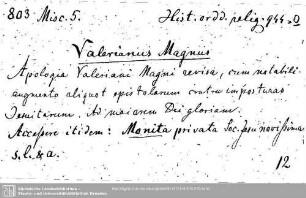 803 Misc. 5. Hist. ordd. relig. 944-0
Valerianus Magnus
Apologia Valeriani Magni revisa, cum notabili
augmento aliquot epistolarum contra imposturas
Jesuitarum. Ad maiorem Dei gloriam.
Accessere itidem: Monita privata Soc. Jesu novissima
s. l. & a.
12